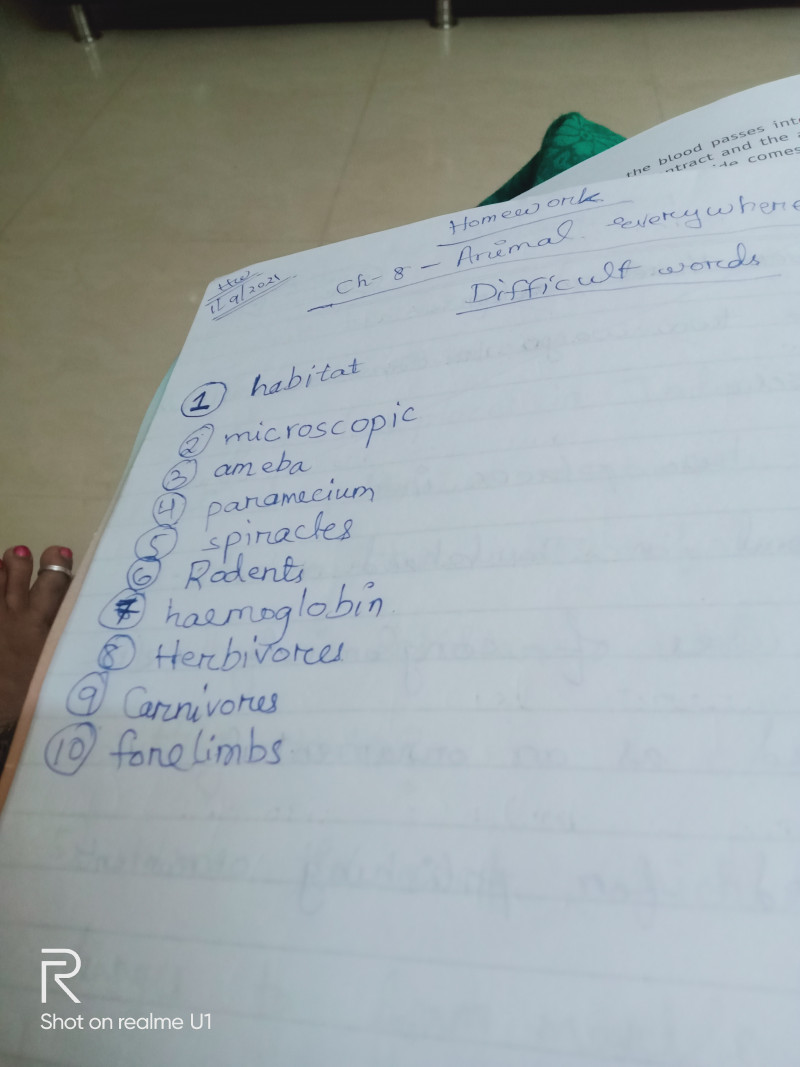 the blood passes int
ntract and the
comes
Homework
HW
11/9/2021
Ch-8 - Animal everywhere
Difficult words
1 habitat
2 microscopic
3 ameba
4 paramecium
5 spiracles
6 Rodents
7 haemoglobin
8 Herbivores
9 Carnivores
10 forelimbs
R
Shot on realme U1